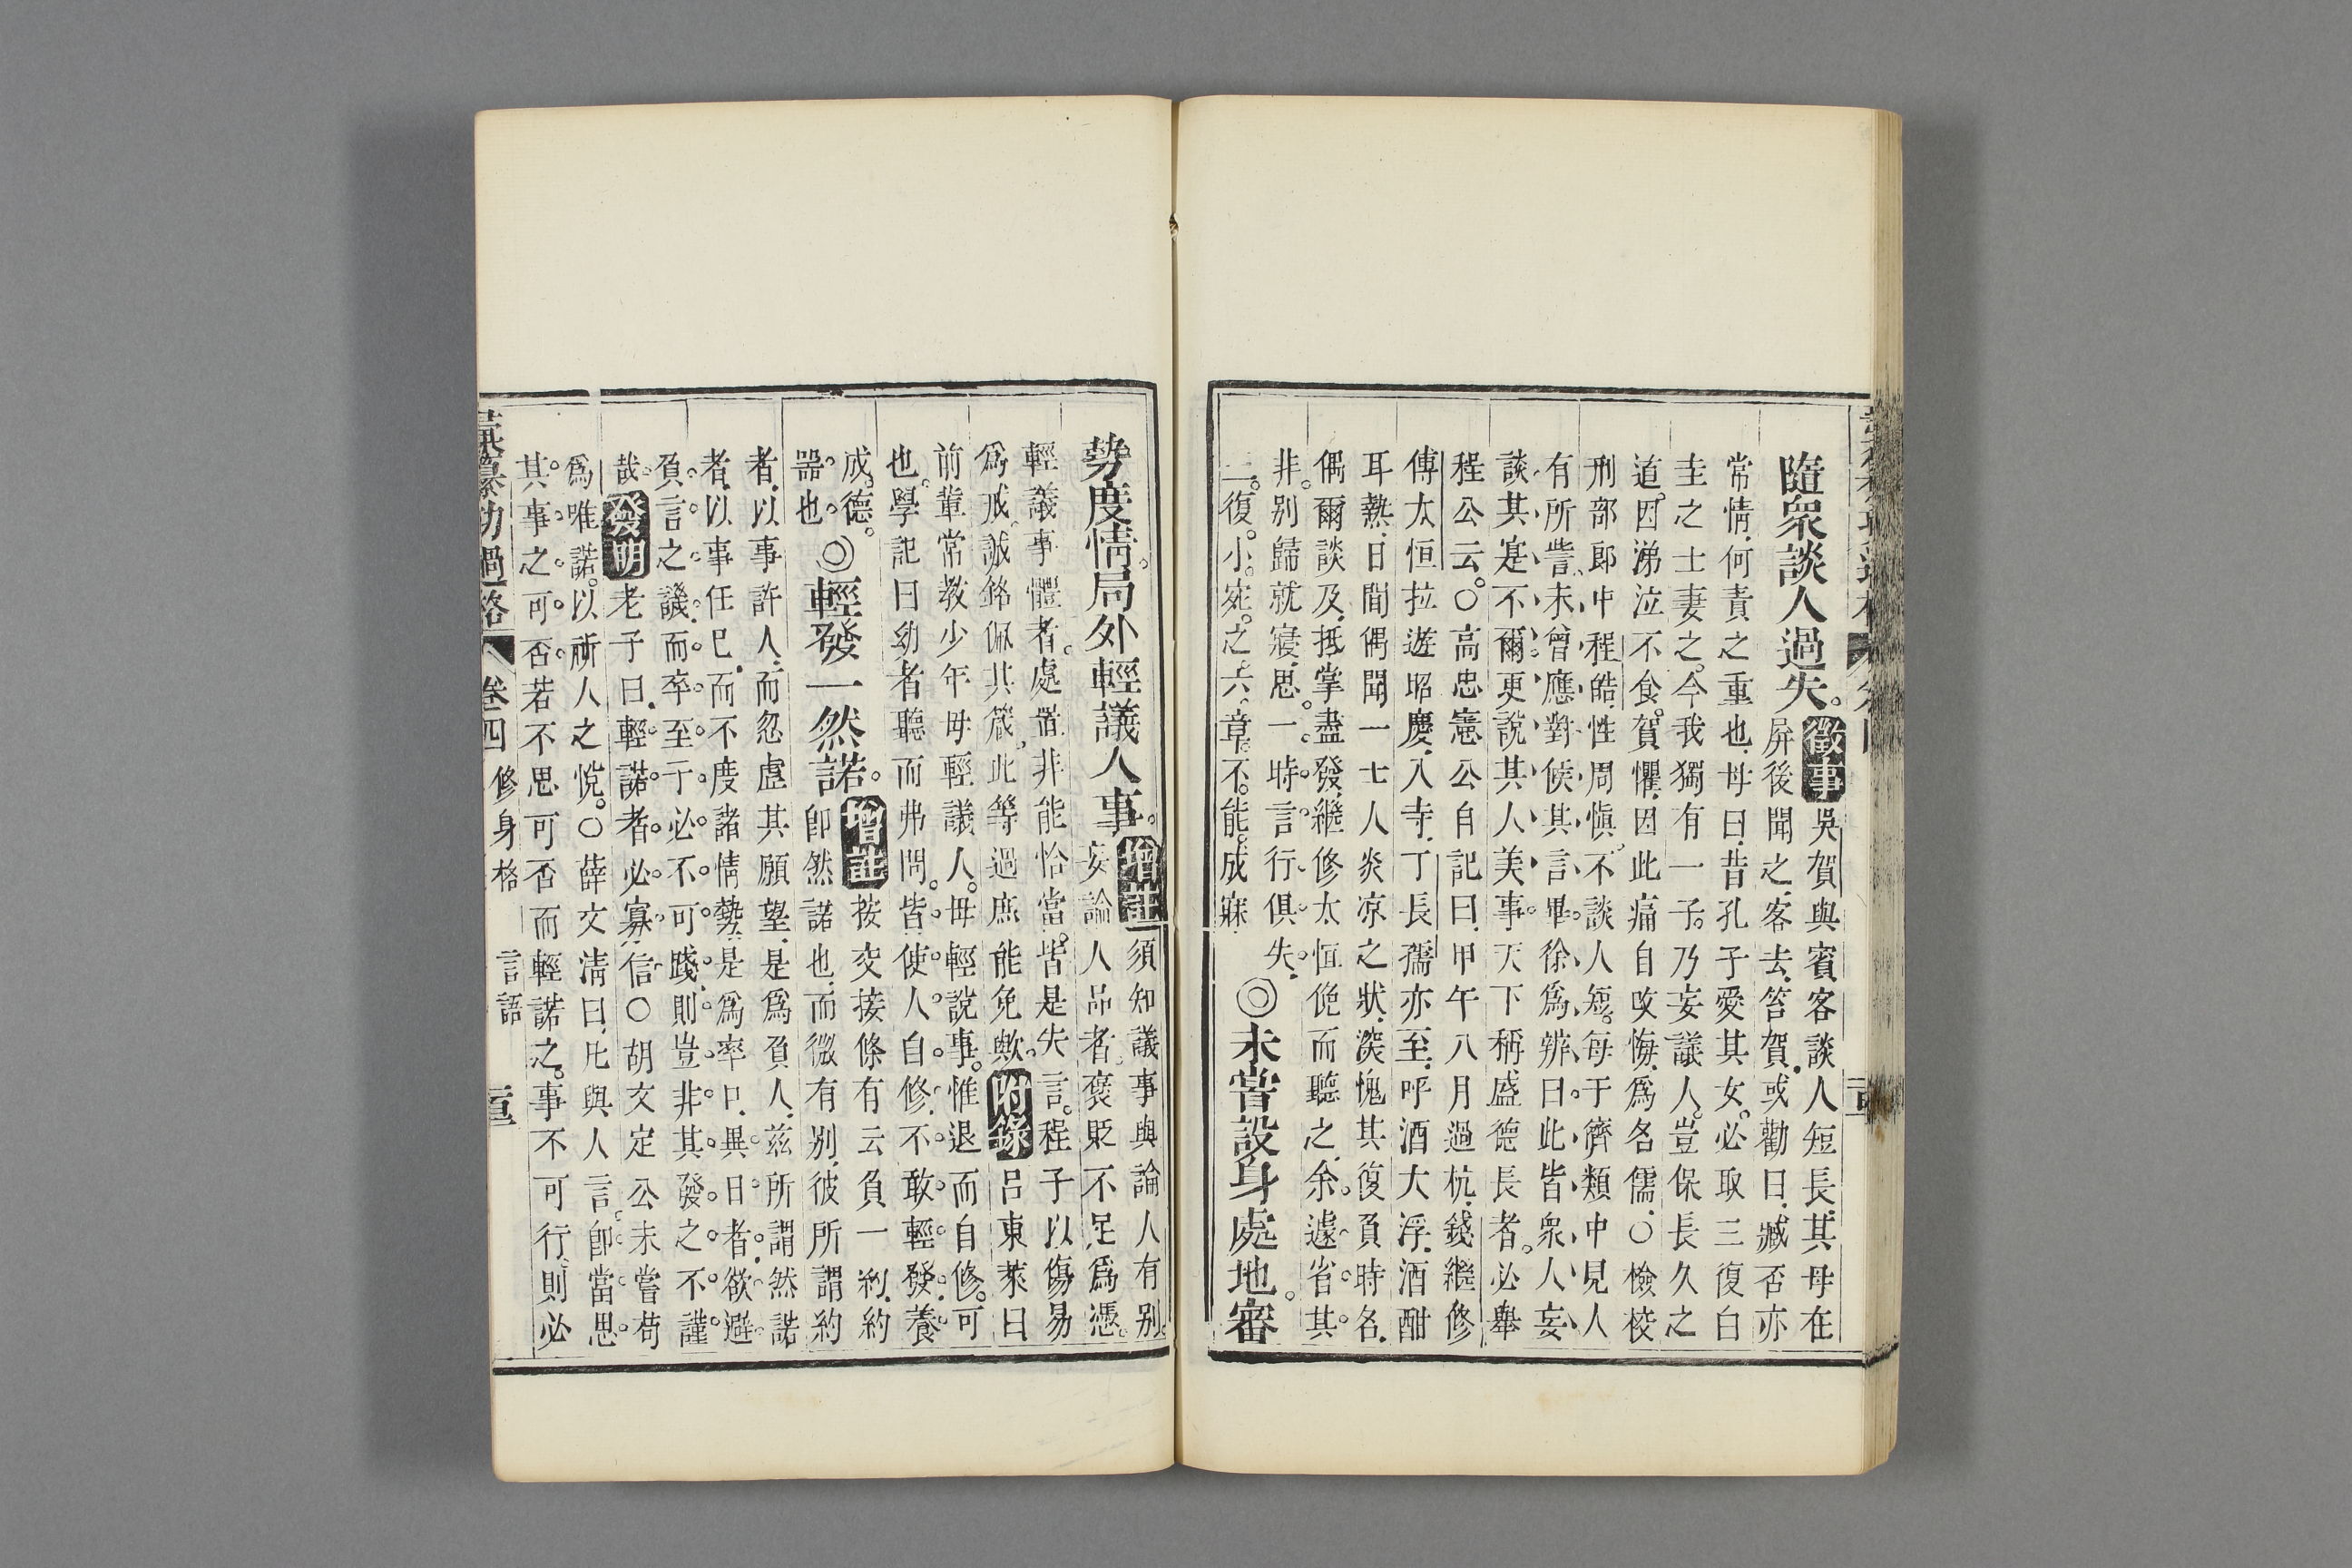 隨衆談人過失。徵事吳賀與賓客談人短長、其母在
屏後聞之、客去、笞賀、或勸曰、臧否亦
常情、何責之重也、母曰、昔孔子愛其女。必取三復白
圭之士妻之。今我獨有一子。乃妄議人。豈保長久之
道。因涕泣不食。賀懼、因此痛自攻悔、爲名儒、〇檢校
刑部郎中程皓、性周愼。不談人短。每于儕類中見人
有所訾、未曾應對、候其言畢、徐爲辨曰、此皆衆人妄
談、其寔不爾、更說其人美事。天下稱盛德長者。必舉
程公云。〇高忠憲公自記曰、甲午八月過杭、錢繼修
傅太恒拉遊昭慶、入寺、丁長孺亦至、呼酒大浮、酒酣
耳熱、日間偶聞一士人炎凉之狀、深愧其復負時名、
偶爾談及、抵掌盡發、繼修太恒俛而聽之、余遽省其
非。別歸就寢、思一時言行俱失。
三復小宛之六章。不能成寐。◎未嘗設身處地。審
勢度情。局外輕議人事。增註須知議事與論人有别。
妄論人品者、褒貶不足爲憑。
輕議事體者。處置非能恰當。皆是失言。程子以傷易
爲戒。誠銘佩其箴、此等過庶能免歟。附錄呂東萊曰
前輩常敎少年毋輕議人。毋輕說事。惟退而自修。可
也。學記曰幼者聽而弗問。皆使人自修、不敢輕發。養
成德。◎輕發一然諾。增註按交接條有云負一約、約
器也。卽然諾也、而微有别、彼所謂約
者、以事許人、而忽虛其願望、是爲負人、兹所謂然諾
者、以事任已、而不度諸情勢、是爲率口、異日者、欲避
負言之譏、而卒至于必不可踐、則豈非其發之不謹
哉。發明老子曰、輕諾者、必寡信〇胡文定公未嘗苟
爲唯諾。以祈人之悅。〇薛文清曰、凡與人言。卽當思
其事之可否。若不思可否而輕諾之。事不可行、則必
彙纂功過格 卷四 修身格 言語